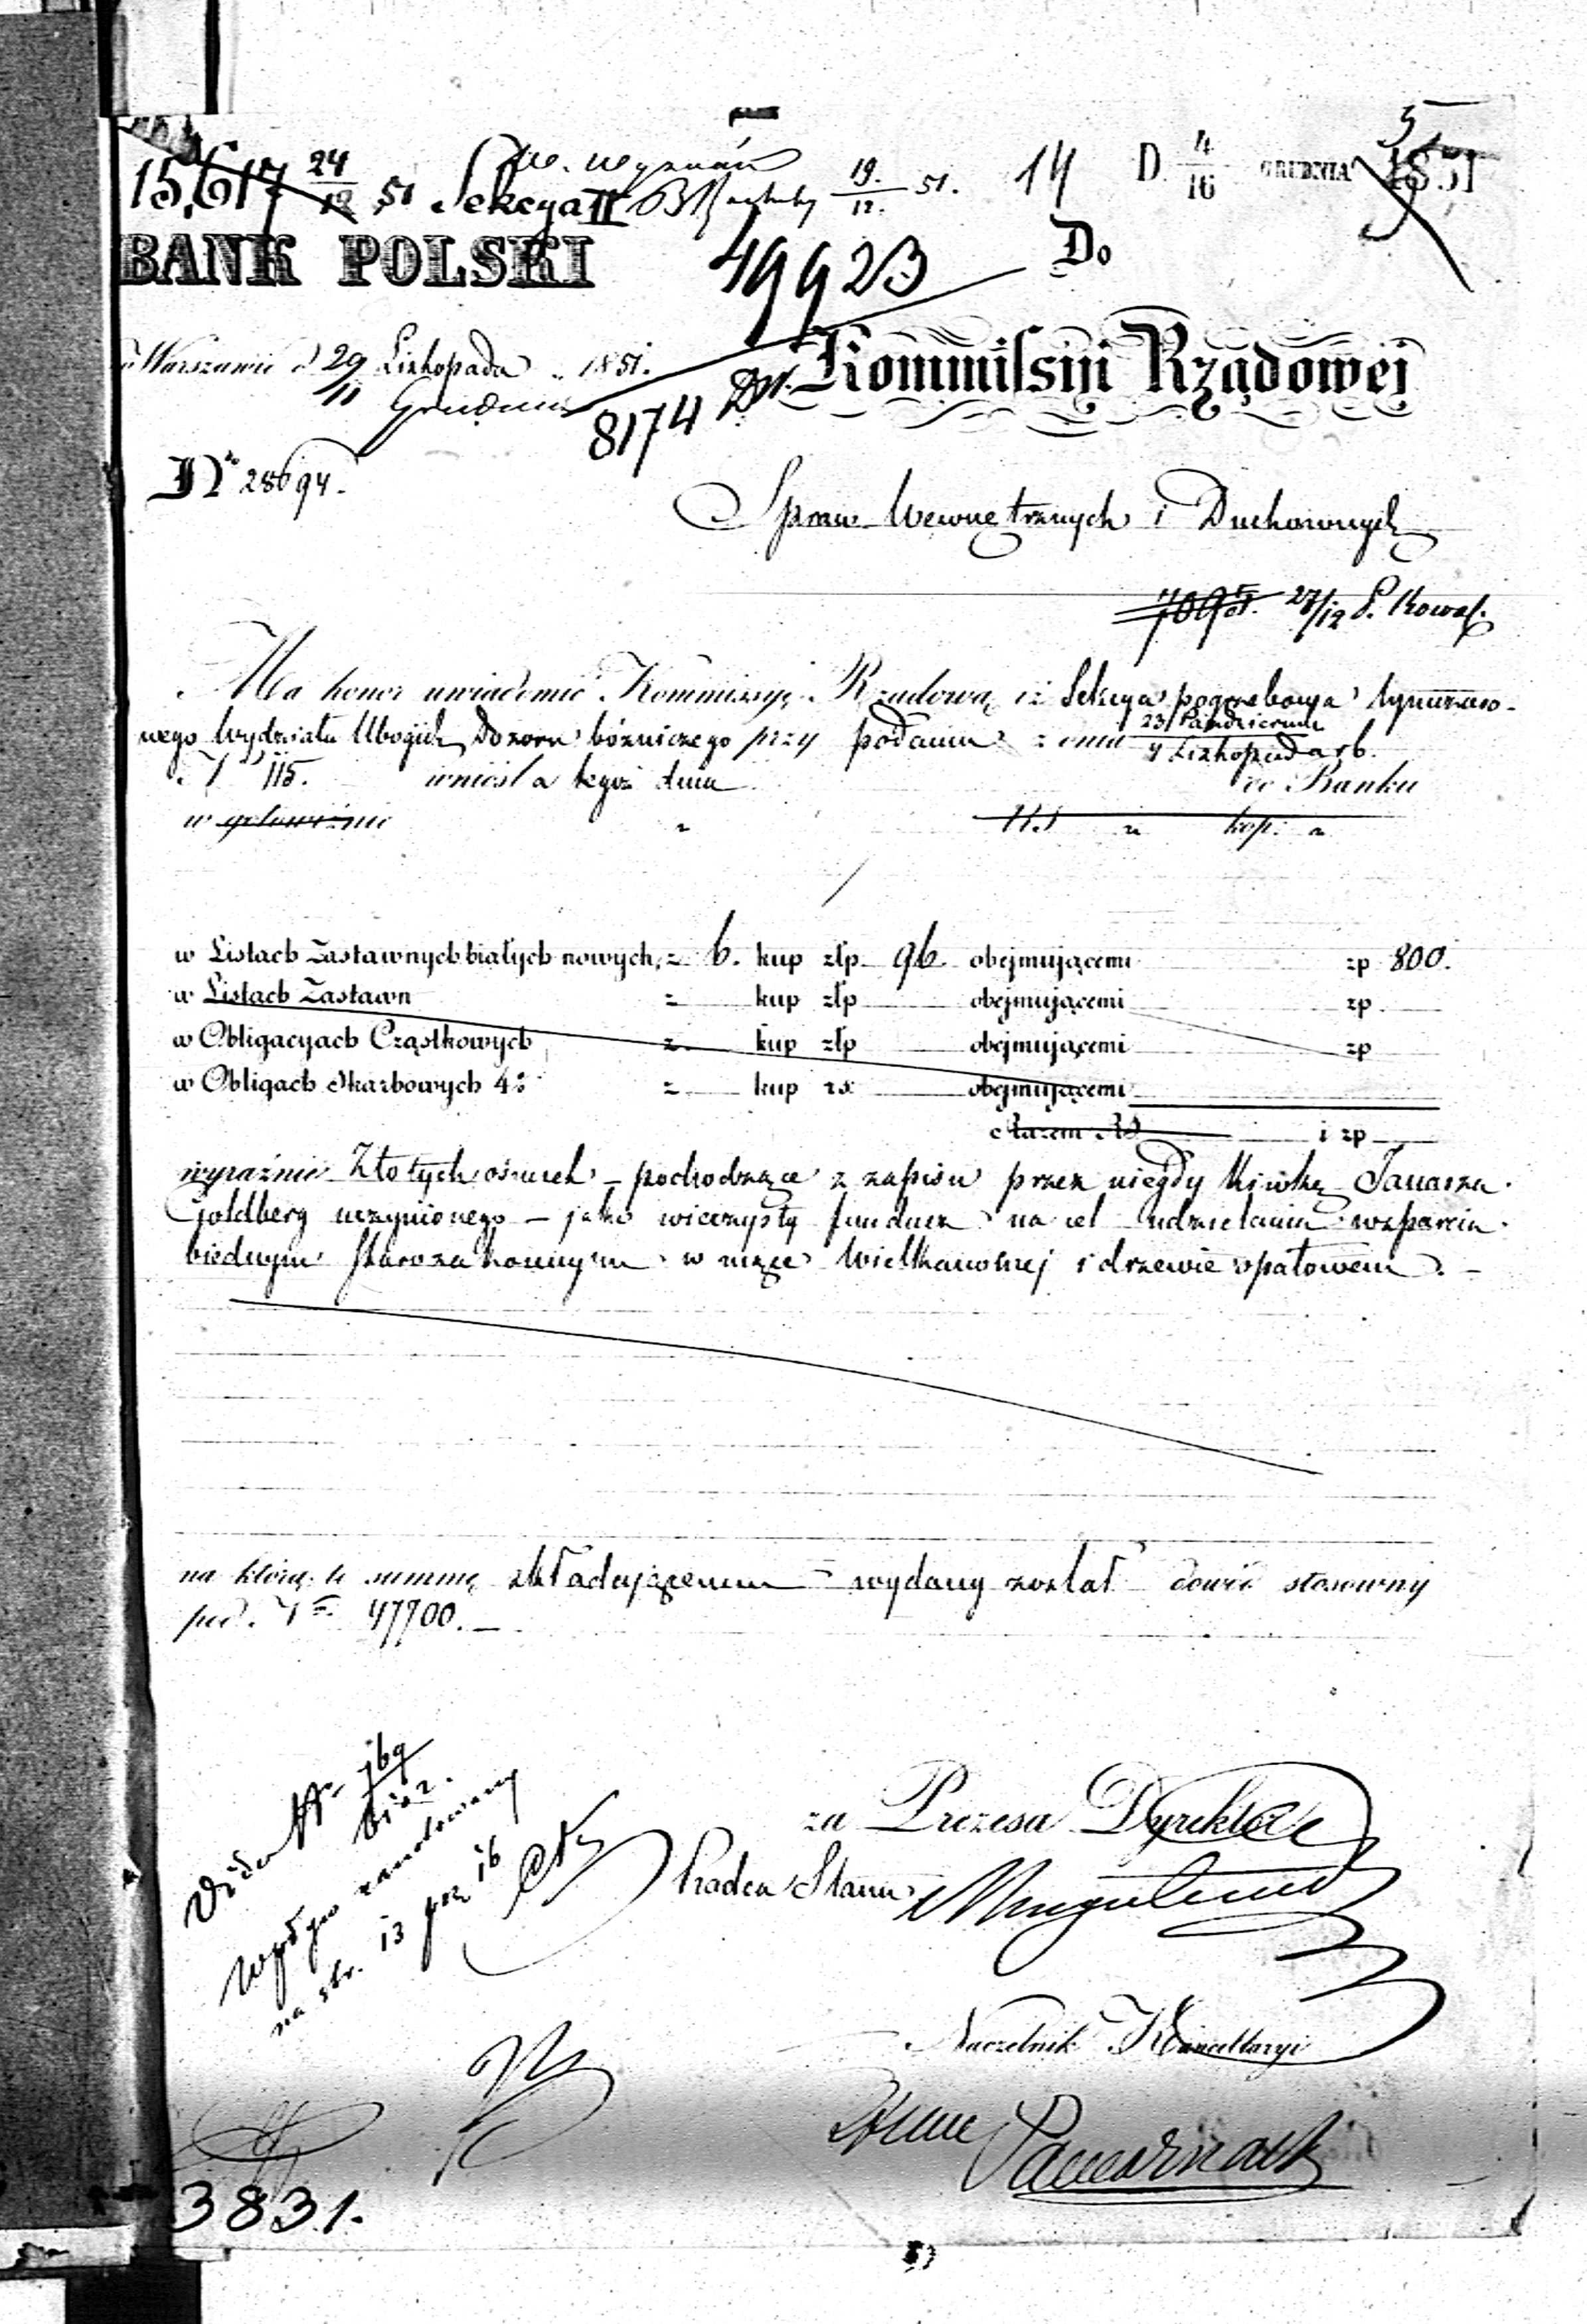 15,617 24/12 51 Sekcya II 19./12. 51. 14 D. 4/16 GRUDNIA 1851
BANK POLSKI
49923
Do
w Warszawie d 29 Listopada 1851.
11 Grudnia
8174
Kommissyi Rządowej
No 28694.
Spraw Wewnętrznych i Duchownych
27/12 P. Kowal.
Ma honor uwiadomić Kommissyę Rządową iż Sekcya pogrzebowa tymczaso-
wego Wydziału Ubogich Dozoru bóżniczego przy podaniu z dnia 23 Października
4 Listopada r b.
N 115. wniosła tegoż dnia do Banku
w gotowiźnie RS kop:
w Listach Zastawnych białych nowych, z 6. kup złp 96 obejmującemi zp 800.
w Listach Zastawn z kup złp obejmującemi zp
w Obligacyach Cząstkowych z kup złp obejmującemi zp
w Obligach Skarbowych 4% z kup rs obejmującemi
Razem RS i zp
wyraźnie Złotych ośmset – pochodzące z zapisu przez niegdy Kiwkę Janasza
Goldberg uczynionego – jako wieczysty fundusz na cel udzielania wsparcia
biednym starozakonnym w mące Wielkanocnej i drzewie opałowem. –
na którą to summę składającemu wydany został dowód stosowny
pod N 47700. –
Vide N 169
wpływ zanotowany
na str. 13 poz 16
za Prezesa Dyrektor
Radca Stanu
Naczelnik Kancellaryi
3831.